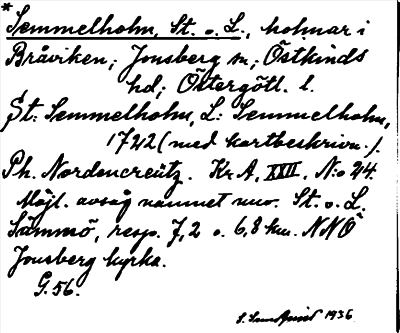 * Semmelholm, St. o. L., holmar i
Bråviken; Jonsberg sn; Östkinds
hd; Östergötl. l.
St: Semmelholm, L: Semmelholm,
1722 (med kartbeskrivn.).
Ph. Nordencreütz. Kr. A, XXII, N:o 24.
Möjl. avsåg namnet nuv. St. o. L.
Sämmö, resp. 7,2 o. 6,8 km. NNÖ
Jonsberg kyrka.
G. 56.
1936